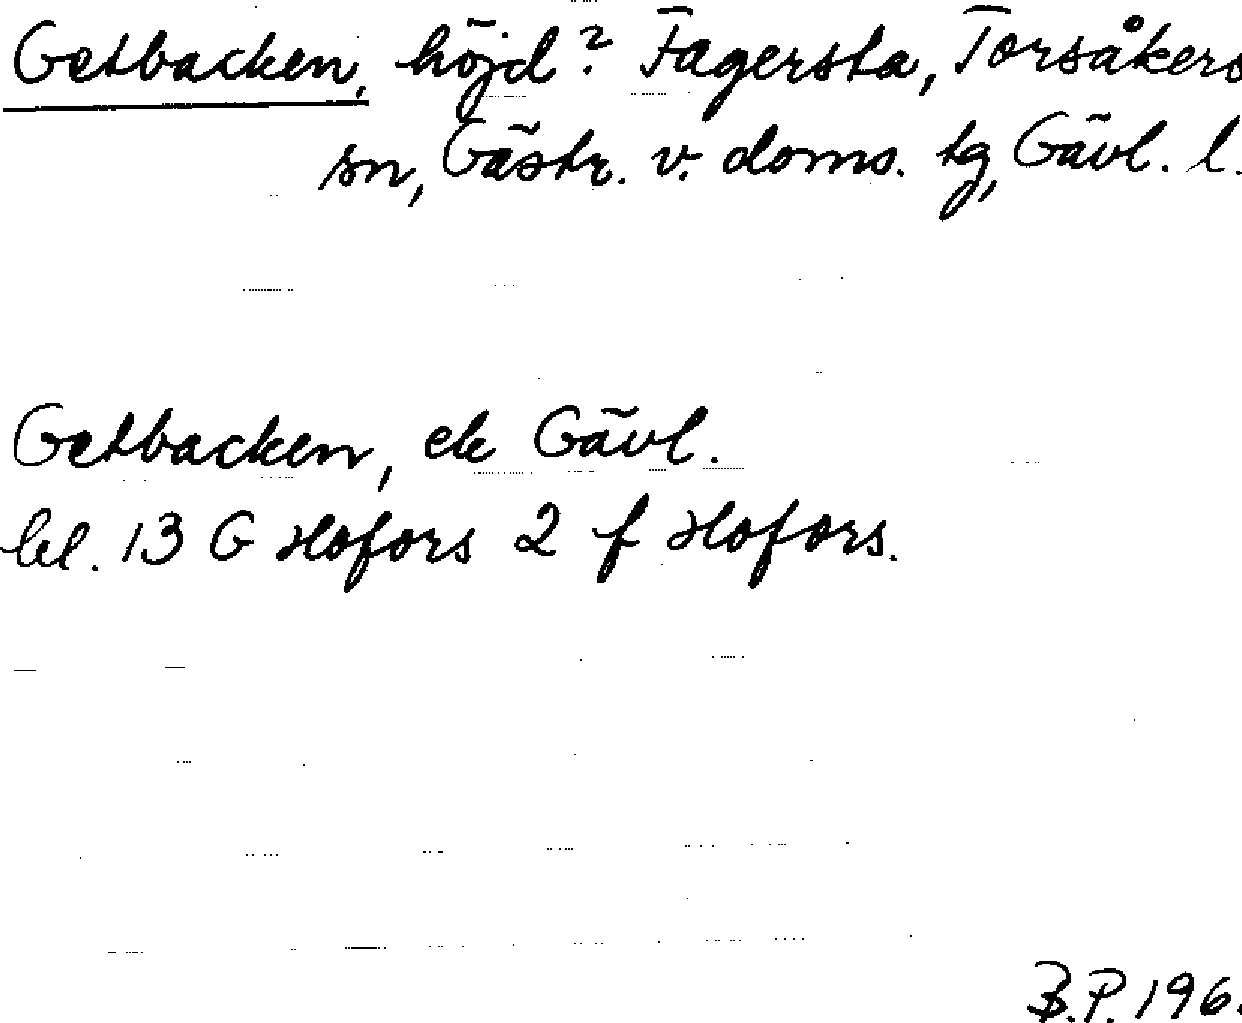 Getbacken, höjd? Fagersta, Torsåkers
sn, Gästr. v. doms. tg, Gävl. l.
Getbacken, ek Gävl.
bl. 13 G Hofors 2 f Hofors.
B.P. 196